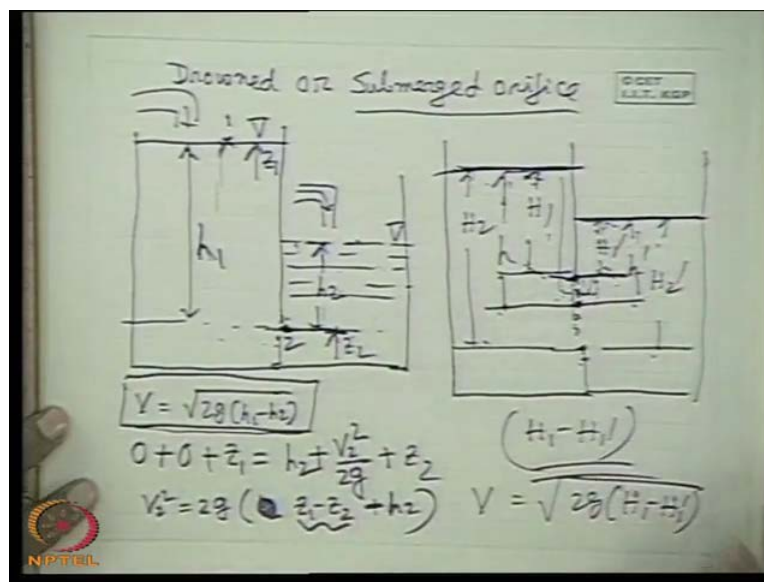 Drowned or Submerged orifice
©CET
I.I.T. KGP
1
z₁
h₁
h₂
2
z₂
H₂
h
H₁
H₁'
h₁
H₂'
V = √2g(h₁-h₂)
0+0+z₁ = h₂ + V₂²/2g + z₂
V₂² = 2g ( z₁-z₂ +h2)
(H₁-H₁')
V = √2g(H₁-H₁')
NPTEL